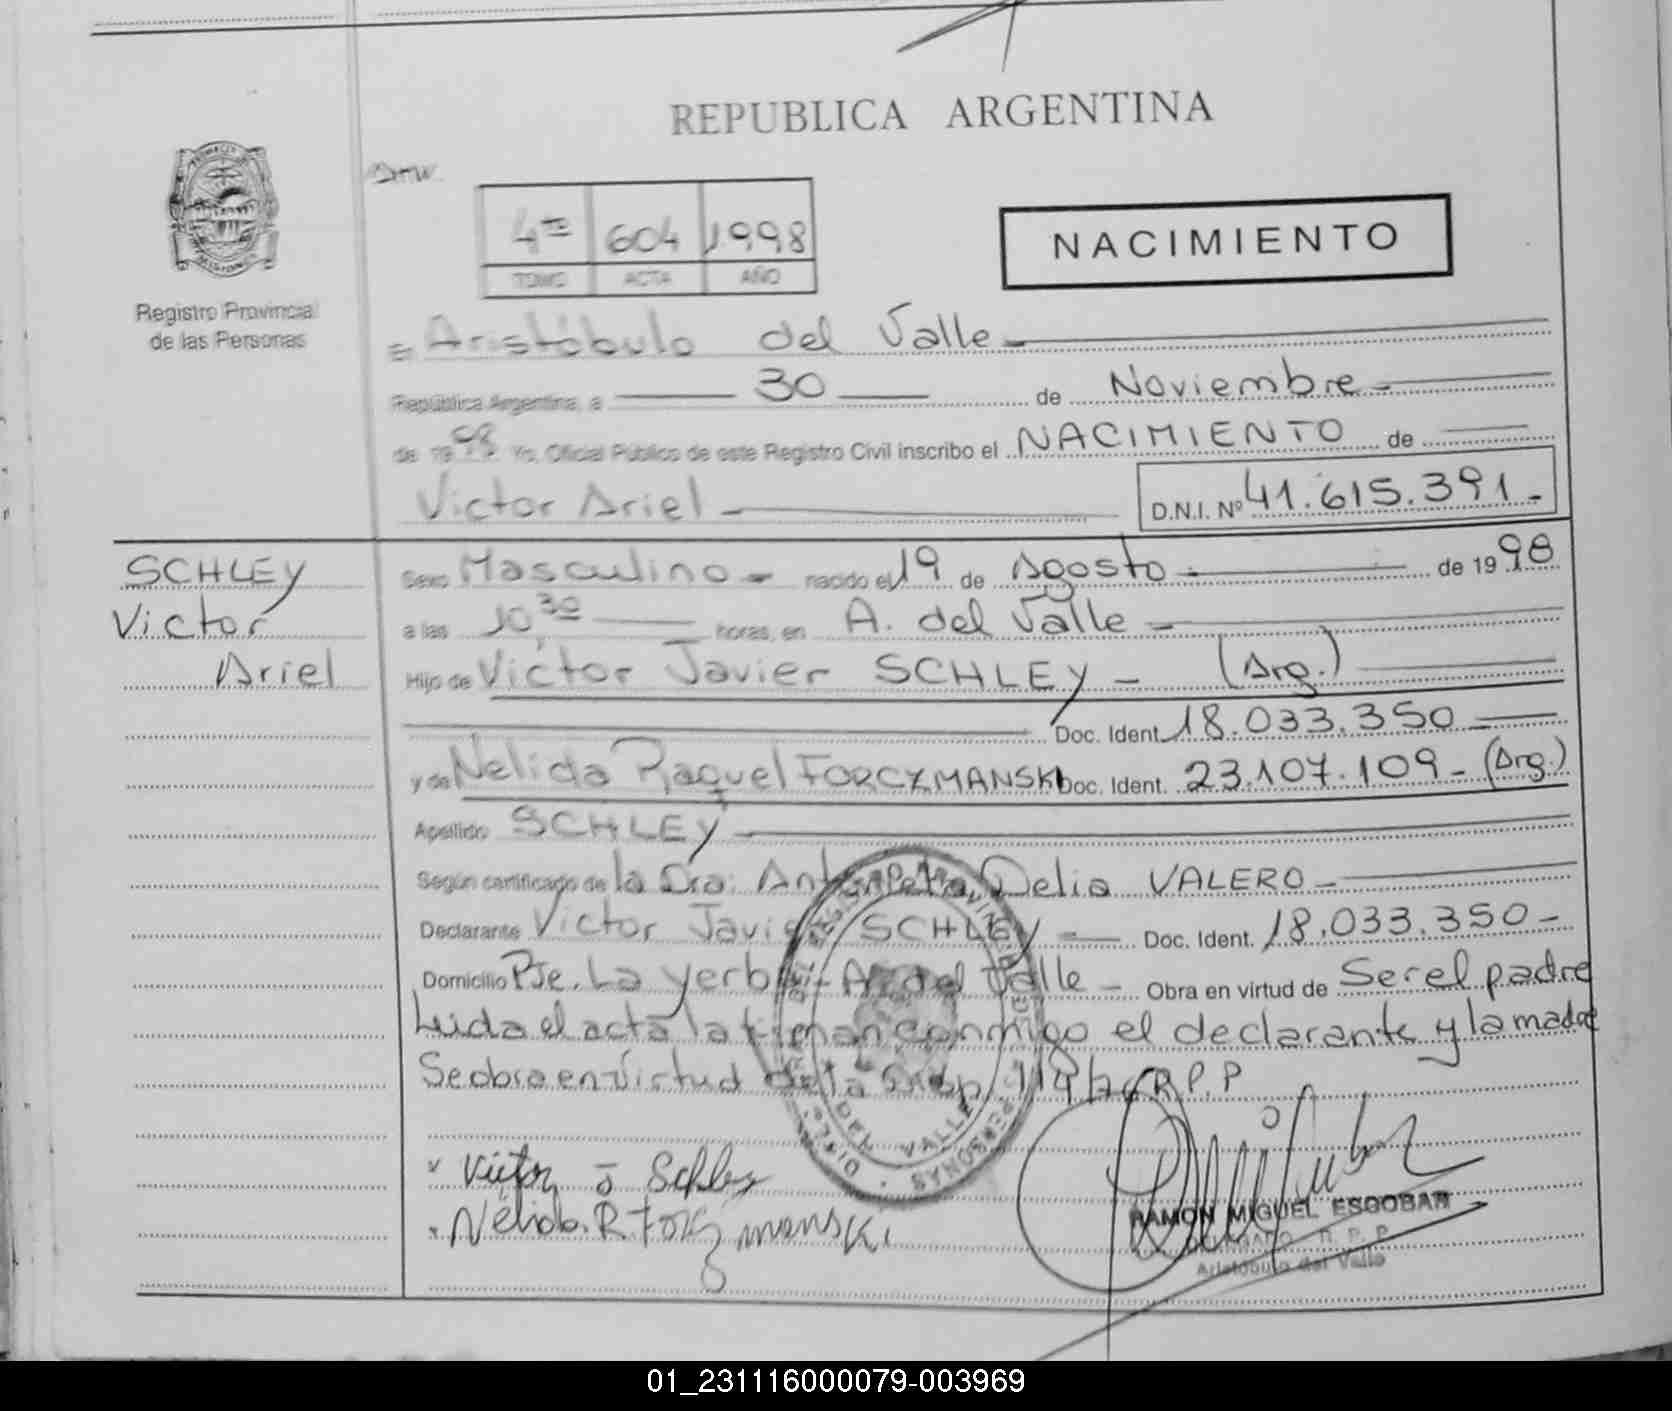 REPUBLICA ARGENTINA
4to 604 1998
TOMO ACTA AÑO
NACIMIENTO
Registro Provincial
de las Personas
En Aristóbulo del Valle
República Argentina, a 30 de Noviembre
de 1998 Yo, Oficial Público de este Registro Civil inscribo el NACIMIENTO de
Victor Ariel
D.N.I. Nº 41.615.391.-
SCHLEY
Victor
Ariel
Sexo Masculino - nacido el 19 de Agosto - de 1998
a las 10,30 horas, en A. del Valle -
Hijo de Victor Javier SCHLEY - (Arg.)
Doc. Ident. 18.033.350 -
y de Nelida Raquel FORCZMANSKI Doc. Ident. 23.107.109 - (Arg.)
Apellido SCHLEY
Según certificado de la Dra: Antonieta Delia VALERO -
Declarante Victor Javier SCHLEY - Doc. Ident. 18.033.350 -
Domicilio Pje. La Yerba - A. del Valle - Obra en virtud de Ser el padre
Leida el acta la firman conmigo el declarante y la madre
Se obra en virtud de la Disp. 114/76 R.P.P
DEL VALLE
PERSONAS
Victor J Schley
Nélida. R Forczmanski
RAMON MIGUEL ESCOBAR
DELEGADO R. P. P.
Aristóbulo del Valle
01_231116000079-003969